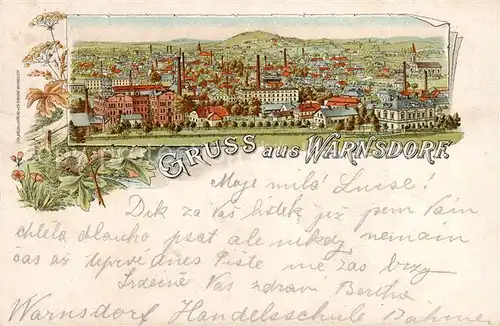 GRUSS aus WARNSDORF.
Moje milá Luise!
Dík za Váš lístek již jsem Vám
chtěla dlouho psat ale nikdy nemám
čas až teprvé dnes Pište mě zas brzy
Srdečně Vás zdraví Bertha
Warnsdorf Handelsschule Böhmen